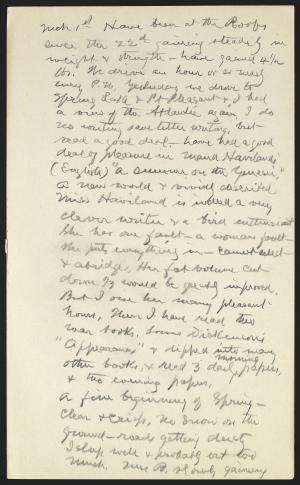 Mch 1st Have been at the Roofs
since the 22d gaining steadily in
weight & strength – have gained 4½
lbs. We drive an hour or so nearly
every P.M. Yesterday we drove to
Spring Lake & Pt Pleasant & I had
a view of the Atlantic again. I do
no writing save letter writing, but
read a good deal – have had a good
deal of pleasure in Maud Haviland's
(English) "A Summer on the Yenesei,"
a new world & vividly described
Miss Haviland is indeed a very
clever writer & a bird enthusiast
She has one fault – a woman's fault –
she puts everything in – cannot select
& abridge. Her fat volume cut
down ⅓ would be greatly improved.
But I owe her many pleasant
hours. Then I have read two
war books, Lowes Dickinson's
"Appearances" & dipped into many
other books, & read 3 daily morning papers,
& two evening papers.
A fine beginning of Spring –
clear & crisp, no snow on the
ground – roads getting dusty
I sleep well & probably eat too
much. Mrs B. slowly gaining